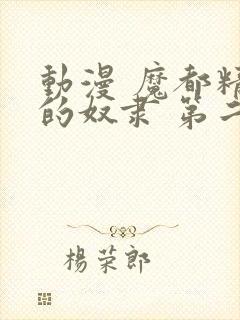 動漫 魔都精
的奴隶 第二
楊荣郎